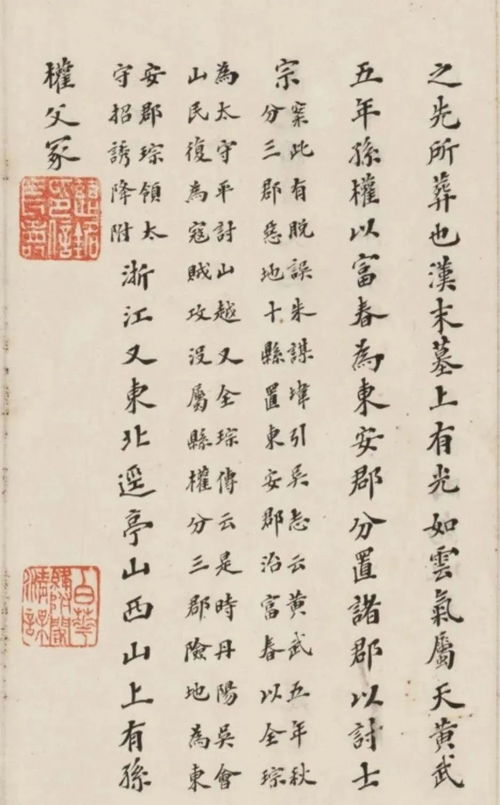 之先所葬也漢末墓上有光如雲氣屬天黃武
五年孫權以富春為東安郡分置諸郡以討士
宗
案此有脫誤朱謀㙔引吳志云黃武五年秋
分三郡惡地十縣置東安郡治富春以全琮
為太守平討山越又全琮傳云是時丹陽吳會
山民復為寇賊攻沒屬縣權分三郡險地為東
安郡琮領太
守招誘降附
浙江又東北逕亭山西山上有孫
權父冢